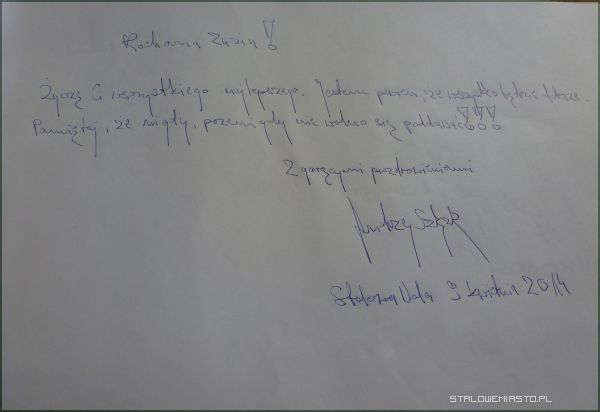 Kochana Zuziu!
Życzę Ci wszystkiego najlepszego. Jestem pewien, że wszystko będzie dobrze.
Pamiętaj, że nigdy, przenigdy nie wolno się poddawać!!!
Z gorącymi pozdrowieniami
Andrzej Szlęzak
Stalowa Wola 9 kwietnia 2014
STALOWEMIASTO.PL